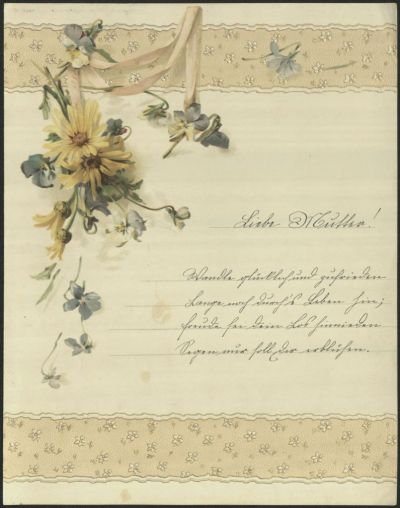 Liebe Mutter!
Wandle glücklich und zufrieden
Lange noch durch's Leben hin;
Freude sei dein Los hienieden
Segen nur soll dir erblühen.